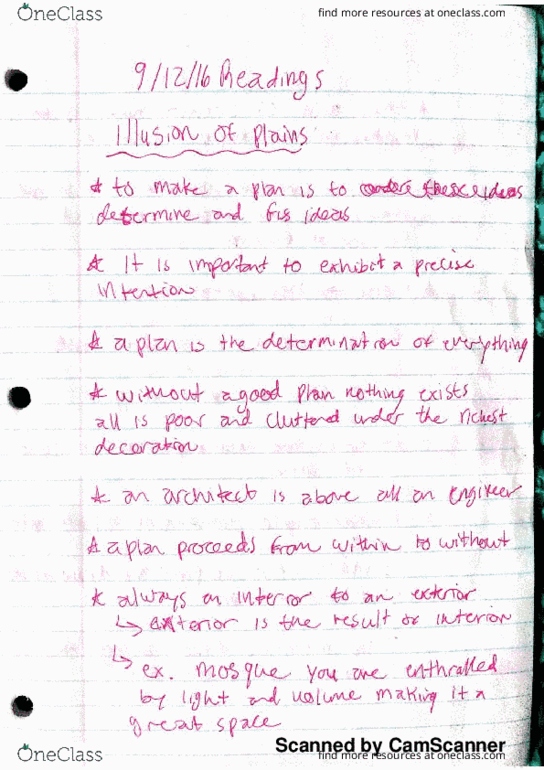 OneClass
find more resources at oneclass.com
9/12/16 Readings
Illusion of Plains
* to make a plan is to
determine and fis ideas
* It is important to exhibit a precise
intention
* a plan is the determination of everything
* without a good plan nothing exists
all is poor and cluttered under the richest
decoration
* an architect is above all an engineer
* a plan proceeds from within to without
* always an interior to an exterior
↳ exterior is the result of interior
↳ ex. mosque you are enthralled
by light and volume making it a
great space
OneClass
Scanned by CamScanner
find more resources at oneclass.com